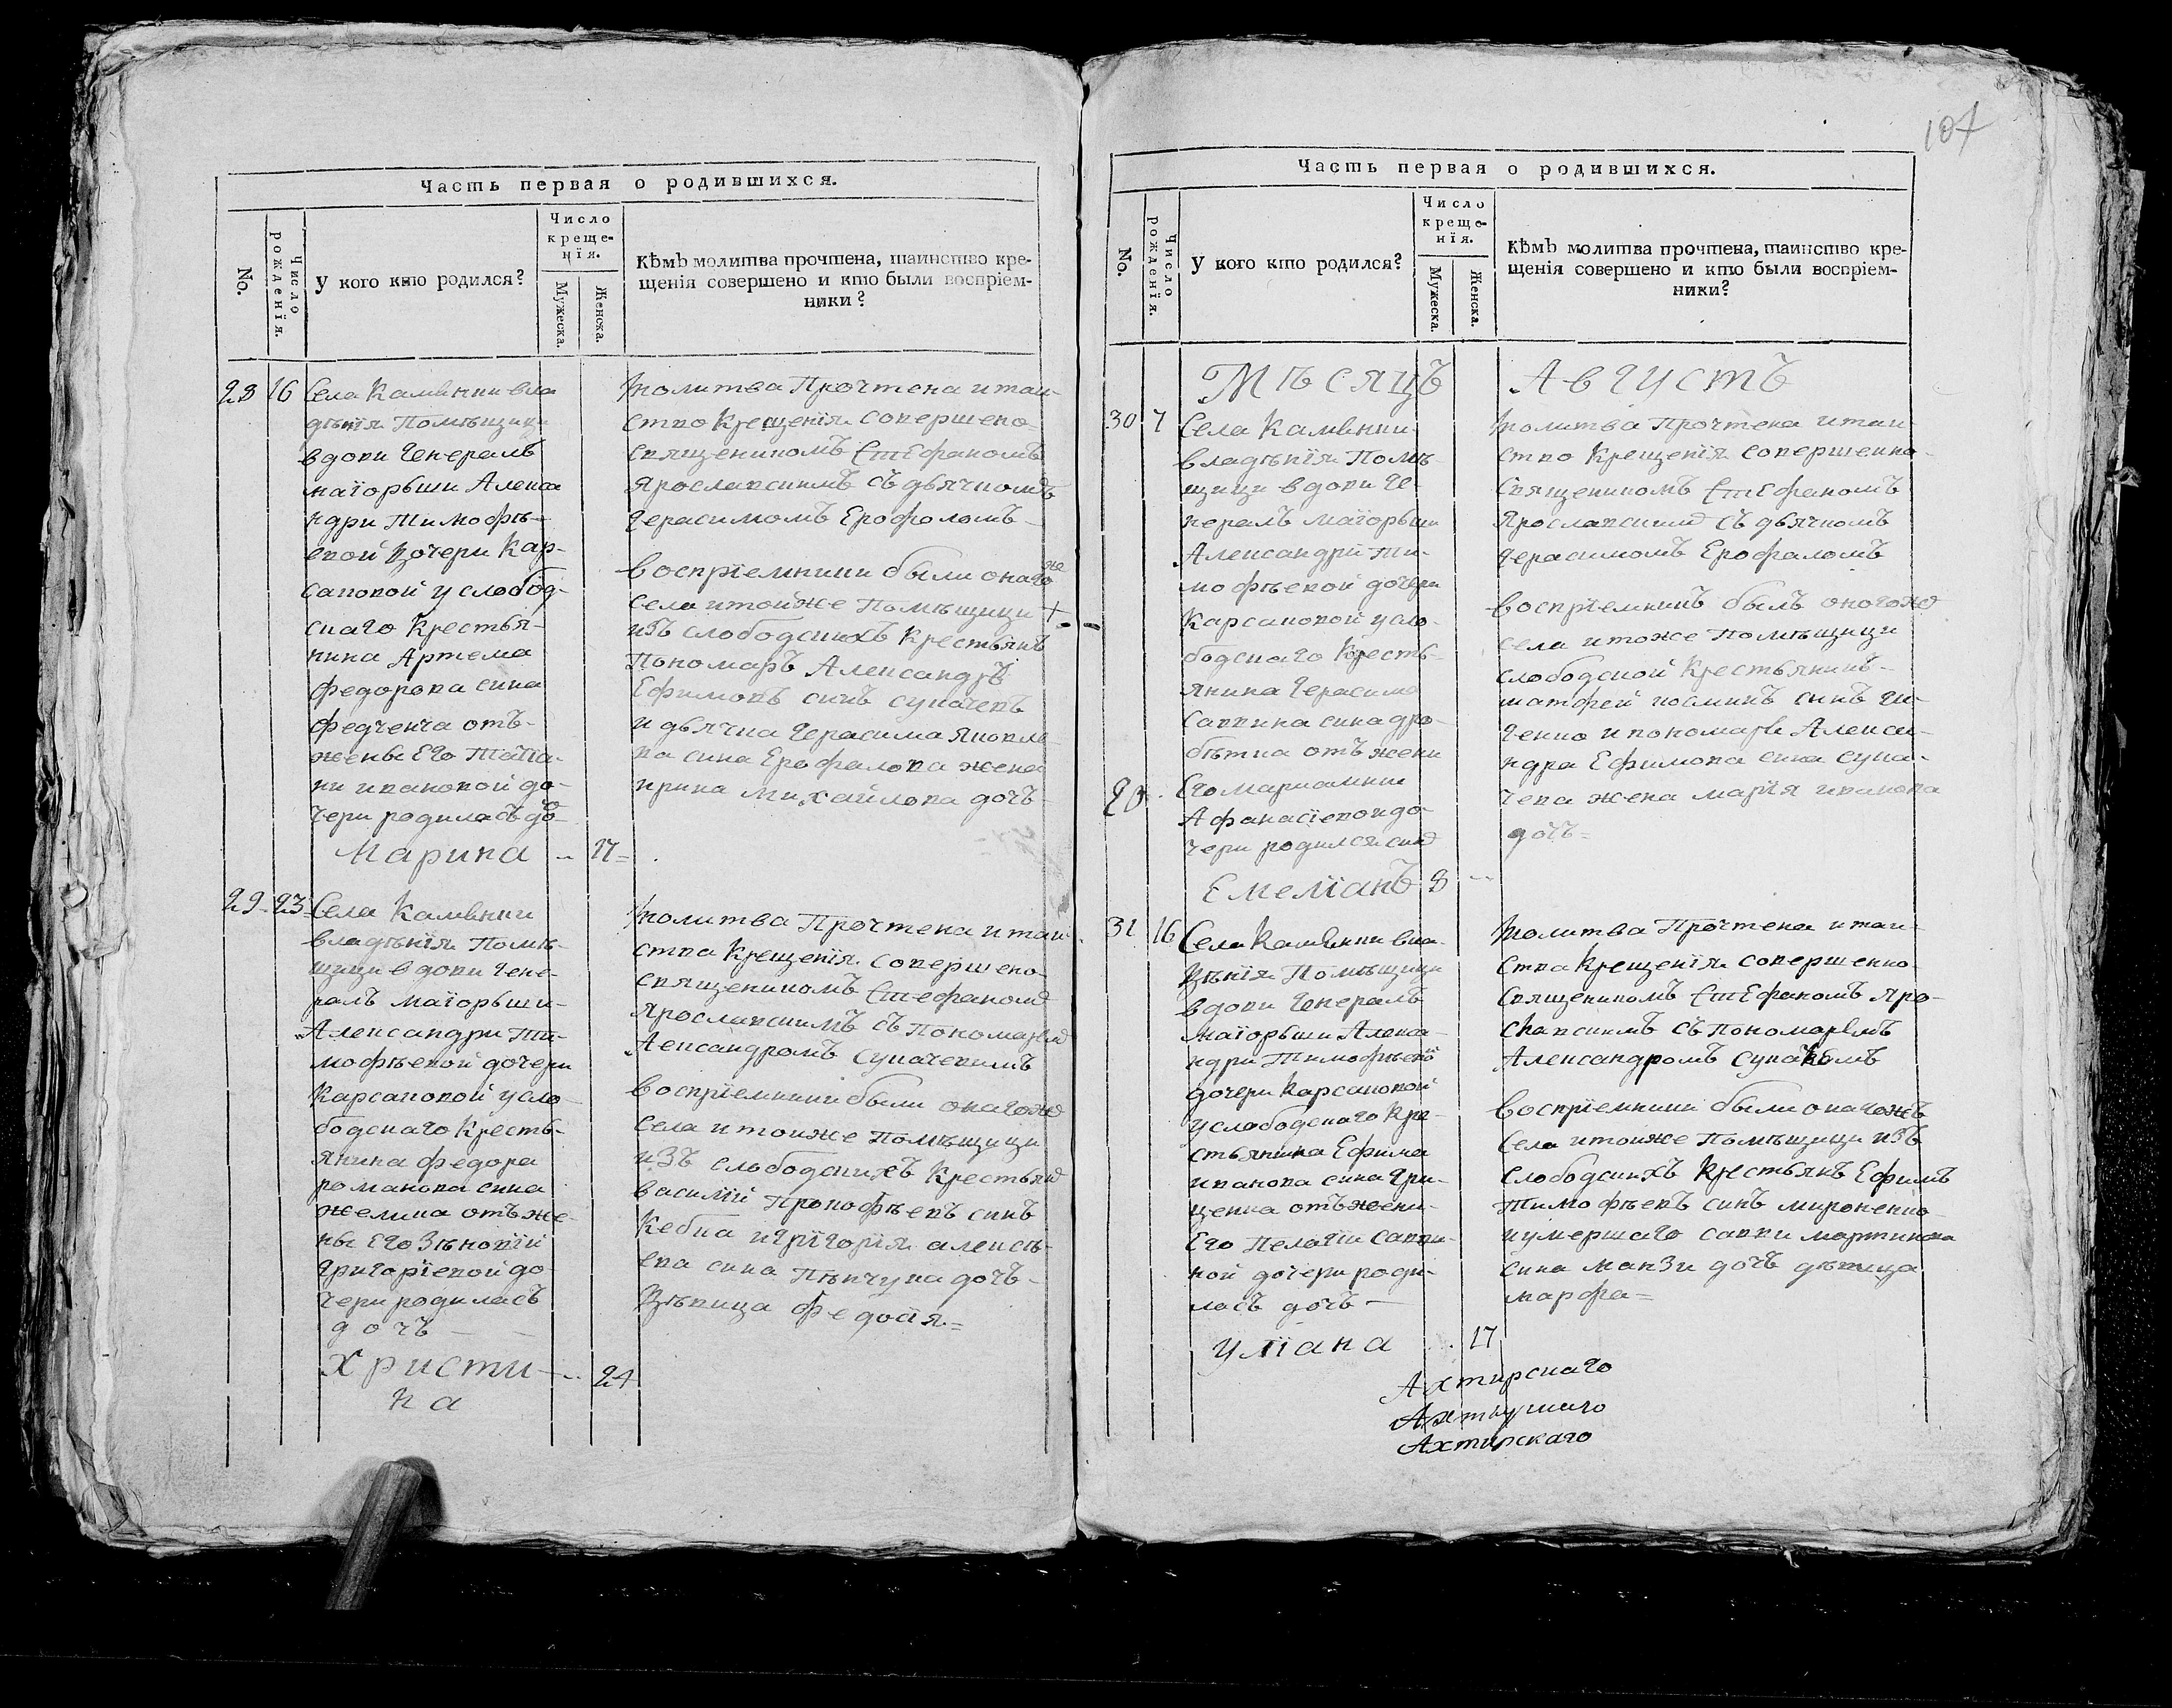 107
Часть первая о родившихся.
No.
Число рожденїя.
У кого кто родился?
Число
креще-
нїя.
Мужеска.
Женска.
Кѣмъ молитва прочтена, таинство кре-
щенїя совершено и кто были воспрїем-
ники?
28 16 Села Каменки вла
дѣнїя Помѣщици
вдови Генералъ
маїорьши Алекса
ндри Тимофѣ-
евой дочери Кар-
саковой у слобод-
скаго Крестья-
нина Артема
федорова сина
федченча отъ-
жены Его Татїа-
ни ивановой до-
чери родиласъ до
Марина 17
молитва Прочтена и таи-
ство Крещенїя совершено
священикомъ Стефаномъ
Ярославскимъ съ дьячкомъ
Герасимомъ Ерофаломъ
воспрїемники были онаго же
села и тойже Помѣщици +
изъ слободскихъ Крестьянъ
Пономаръ Александръ
Ефимовъ синъ сукачевъ
и дьячка Герасима Яковле
ва сина Ерофалова жена
ирина михайлова дочъ
29 23 Села Каменки
владѣнїя Помѣ-
щици вдови Гене-
ралъ маїорьши
Александри Ти-
мофѣевой дочери
Карсаковой у сло-
бодскаго Кресть-
янина федора
романова сина
желика отъ же-
ны Его Зѣновїи
Григорїевой до
чери родиласъ
дочъ
Христи-
на 24
молитва Прочтена и таи
ства Крещенїя совершено
священикомъ Стефаномъ
Ярославскимъ съ Пономаремъ
Аександромъ Сукачевимъ
воспрїемники были онагожъ
села и тоиже Помѣщици
изъ слободскихъ Крестьянъ
василїй Прокофѣевъ синъ
Кебка и григорїя алексѣ-
ева сина Пѣвчука дочъ
Дѣвица федосїя
Часть первая о родившихся.
No.
Число рожденїя.
У кого кто родился?
Число
креще-
нїя.
Мужеска.
Женска.
Кѣмъ молитва прочтена, таинство кре-
щенїя совершено и кто были воспрїем-
ники?
Мѣсяцъ Августъ
30 7 Села Каменки
владѣнїя Помѣ-
щици вдови Ге-
нералъ маїорьши
Александри Ти-
мофѣевой дочери
Карсаковой у сло-
бодскаго Кресть-
янина Герасима
Саввина сина дро-
бѣтка отъ жени
20 Его мариамни
Афанасїевои до
чери родился синъ
Емелїанъ 8
молитва Прочтена и таи
ство Крещенїя совершенно
Священикомъ Стефаномъ
Ярославскимъ съ дьячкомъ
Герасимомъ Ерофаломъ
воспрїемникъ былъ оногожъ
села и тоже Помѣщици
слободской Крестьянинъ
матфей косминъ синъ Ги-
ченко и пономаря Алекса-
ндра Ефимова сина сука-
чева жена марїя иванова
дочъ
31 16 Села Каменки вла-
Дѣнїя Помѣщици
вдови Генералъ
маїорьши Алекса-
ндри Тимофѣевой
дочери Карсаковой
у слободскаго Кре-
стьянина Ефима
иванова сина Гри-
ценка отъ жени
Его Пелагїи Савви-
ной дочери роди-
лась дочъ
Улїана 17
молитва Прочтена и таи-
ства Крещенїя совершенно
священикомъ Стефаномъ Яро-
славскимъ съ пономаремъ
Александромъ Сукачевимъ
воспрїемники были онагожъ
Села и тоиже Помѣщици изъ
слободскихъ Крестьянъ Ефимъ
Тимофѣевъ синъ мироненко
и умершаго савви мартинова
сина манзи дочъ дѣвица
марфа
Ахтирскаго
Ахтирскаго